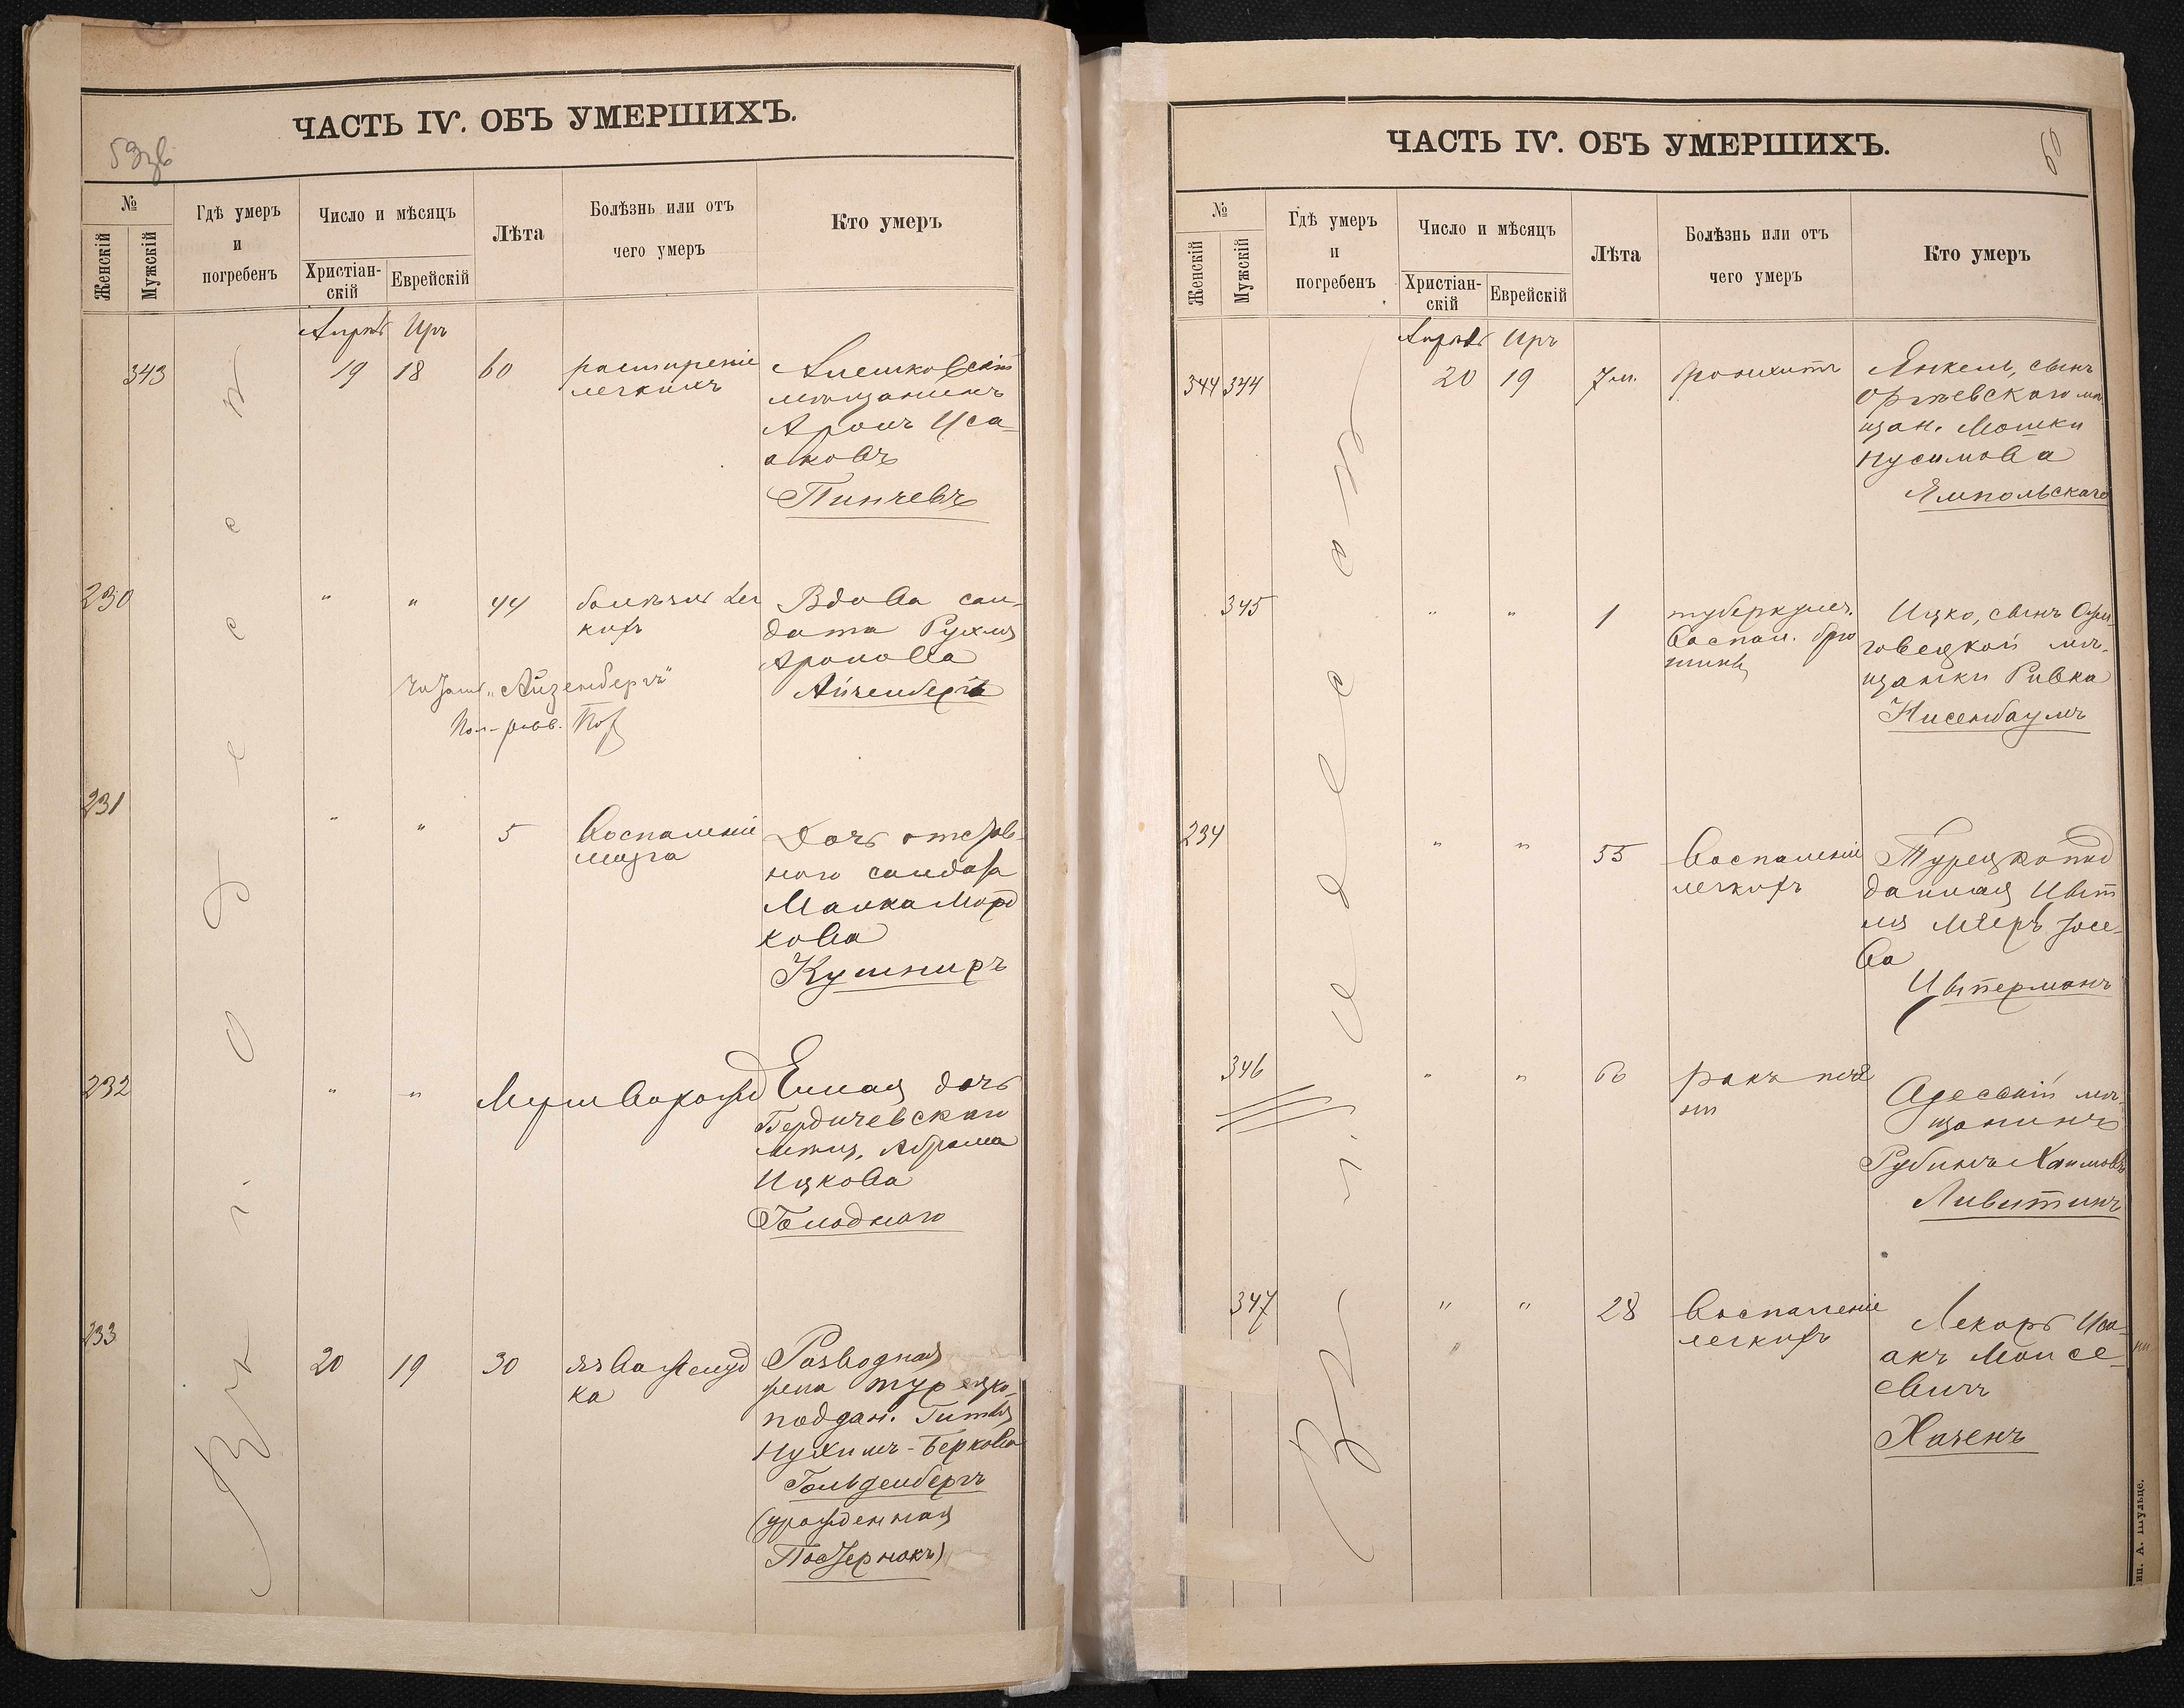 ЧАСТЬ IV. ОБЪ УМЕРШИХЪ.
59об
№
Женскій
Мужскій
Гдѣ умеръ
и
погребенъ
Число и мѣсяцъ
Христіан-
скій
Еврейскій
Лѣта
Болѣзнь или отъ
чего умеръ
Кто умеръ
Въ г. Одессѣ
Апрѣль Иръ
343 19 18 60
расширеніе
легкихъ
Алешковскій
мѣщанинъ
Аронъ Иса-
аковъ
Пинчевъ
230 " " 44
болѣзнь лег
кихъ
Вдова сол-
дата Рухля
Аронова
Айзенбергъ
"Айзенбергъ"
231 " " 5
Воспаленіе
мозга
Дочь отстав-
ного солдата
Малка Морд
кова
Кушниръ
232 " "
Мертворожд
Енная дочь
Бердичевскаго
мѣщ. Абрама
Ицкова
Голоднаго
233 20 19 30
язва желуд
ка
Разводная
жена турецко-
поддан. Гитля
Нухимъ-Беркова
Гольденбергъ
(урожденная
Постернакъ)
ЧАСТЬ IV. ОБЪ УМЕРШИХЪ.
60
№
Женскій
Мужскій
Гдѣ умеръ
и
погребенъ
Число и мѣсяцъ
Христіан-
скій
Еврейскій
Лѣта
Болѣзнь или отъ
чего умеръ
Кто умеръ
Въ г. Одессѣ
Апрѣль Иръ
344 344 20 19 7 м.
бронхитъ
Янкель, сынъ
Оргѣевскаго мѣ
щан. Мошки
Нусимова
Ямпольскаго
345 " " 1
туберкулез.
воспал. брю
шины
Ицко, сынъ
мѣ-
щанки Ривка
Нисенбаумъ
234 " " 55
Воспаленіе
легкихъ
Турецкопод
данная
Меръ Іосе-
ва
Цвитерманъ
346 " " 60
ракъ пече
ни
Одесскій мѣ-
щанинъ
Рубинъ Хаимовъ
Ливитинъ
347 " " 28
Воспаленіе
легкихъ
Лекарь Иса-
акъ Моисе-
евичъ
Хазенъ
Тип. А. Шульце.